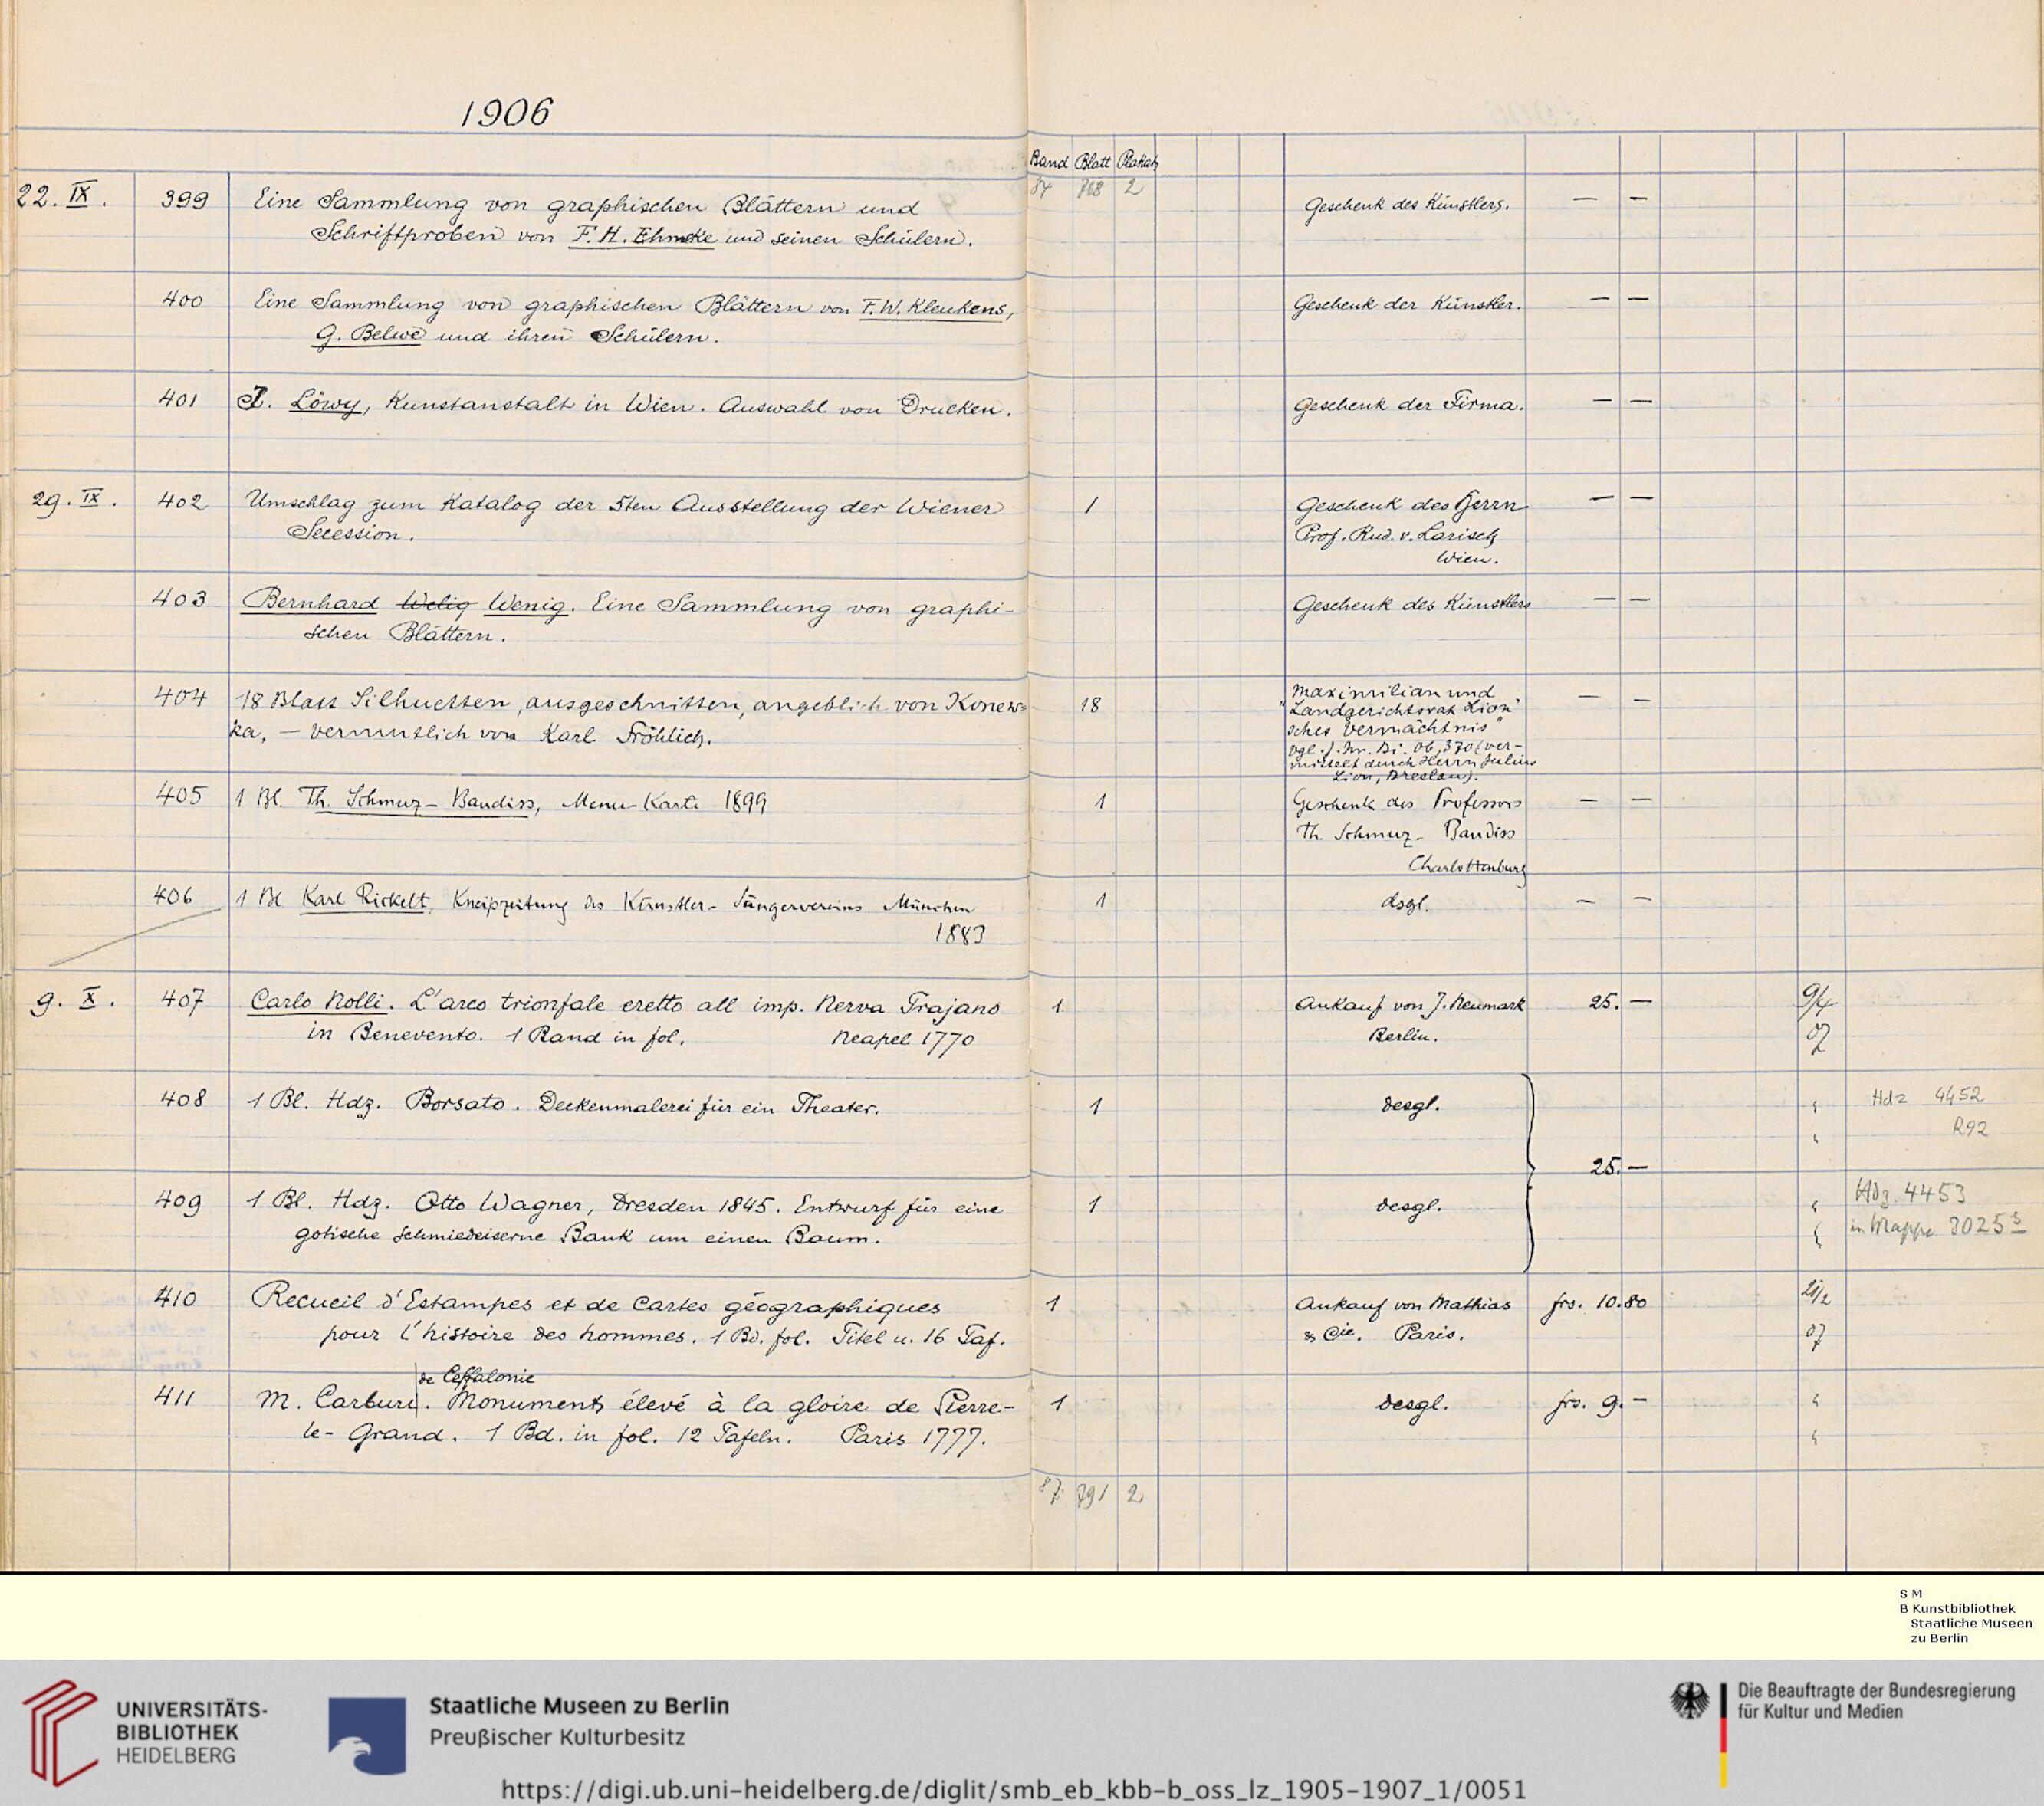 1906
Band Blatt Plakate
84 768 2
22. IX. 399 Eine Sammlung von graphischen Blättern und Geschenk des Künstlers. — —
Schriftproben von F. H. Ehmcke und seinen Schülern.
400 Eine Sammlung von graphischen Blättern von F. W. Kleukens, Geschenk der Künstler. — —
G. Belwe und ihren Schülern.
401 J. Löwy, Kunstanstalt in Wien. Auswahl von Drucken. Geschenk der Firma. — —
29. IX. 402 Umschlag zum Katalog der 5ten Ausstellung der Wiener 1 Geschenk des Herrn — —
Secession. Prof. Rud. v. Larisch
Wien.
403 Bernhard Welig Wenig. Eine Sammlung von graphi- Geschenk des Künstlers — —
schen Blättern.
404 18 Blatt Silhuetten, ausgeschnitten, angeblich von Konew- 18 "Maximilian und — —
ka, — vermutlich von Karl Fröhlich. Landgerichtsrat Lion'
sches Vermächtnis"
vgl. J. Nr. Bi. 06,370 (ver-
mittelt durch Herrn Julius
Lion, Breslau).
405 1 Bl. Th. Schmuz-Baudiss, Menu-Karte 1899 1 Geschenk des Professors — —
Th. Schmuz-Baudiss
Charlottenburg
406 1 Bl Karl Rickelt, Kneipzeitung des Künstler-Sängervereins München 1 dsgl. — —
1883
9. X. 407 Carlo Nolli. L'arco trionfale eretto all imp. Nerva Trajano 1 Ankauf von J. Neumark 25. — 9/4
in Benevento. 1 Band in fol. Neapel 1770 Berlin. 07
408 1 Bl. Hdz. Borsato. Deckenmalerei für ein Theater. 1 desgl. " Hdz 4452
" R92
25. —
409 1 Bl. Hdz. Otto Wagner, Dresden 1845. Entwurf für eine 1 desgl. " Hdz. 4453
gotische schmiedeiserne Bank um einen Baum. " in Mappe 3025 3
410 Recueil d'Estampes et de Cartes géographiques 1 Ankauf von Mathias frs. 10.80 21/2
pour l'histoire des hommes. 1 Bd. fol. Titel u. 16 Taf. & Cie. Paris. 07
de Ceffalonie
411 M. Carburi. Monument élevé à la gloire de Pierre- 1 desgl. frs. 9. — "
le-Grand. 1 Bd. in fol. 12 Tafeln. Paris 1777. "
87 791 2
S M
B Kunstbibliothek
Staatliche Museen
zu Berlin
UNIVERSITÄTS-
BIBLIOTHEK
HEIDELBERG
Staatliche Museen zu Berlin
Preußischer Kulturbesitz
Die Beauftragte der Bundesregierung
für Kultur und Medien
https://digi.ub.uni-heidelberg.de/diglit/smb_eb_kbb-b_oss_lz_1905-1907_1/0051